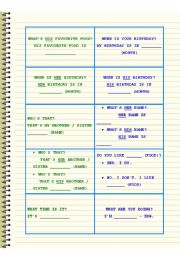 WHAT'S HIS FAVOURITE FOOD?
HIS FAVOURITE FOOD IS
____________
WHEN IS YOUR BIRTHDAY?
MY BIRTHDAY IS IN ________
(MONTH)
WHEN IS HER BIRTHDAY?
HER BIRTHDAY IS IN
________ (MONTH)
WHEN IS HIS BIRTHDAY?
HIS BIRTHDAY IS IN
________ (MONTH)
WHO'S THAT?
THAT'S MY BROTHER /
SISTER ________ (NAME)
• WHAT'S HER NAME?
HER NAME IS
________
• WHAT'S HIS NAME?
HIS NAME IS
________
• WHO'S THAT?
THAT'S HER BROTHER /
SISTER ________ (NAME)
• WHO'S THAT?
THAT'S HIS BROTHER /
SISTER ________ (NAME)
DO YOU LIKE ______ (FOOD)?
• YES, I DO.
• NO, I DON'T. I LIKE
________ (FOOD)
WHAT TIME IS IT?
IT'S ________
WHAT ARE YOU DOING?
I'M ________ - ING.